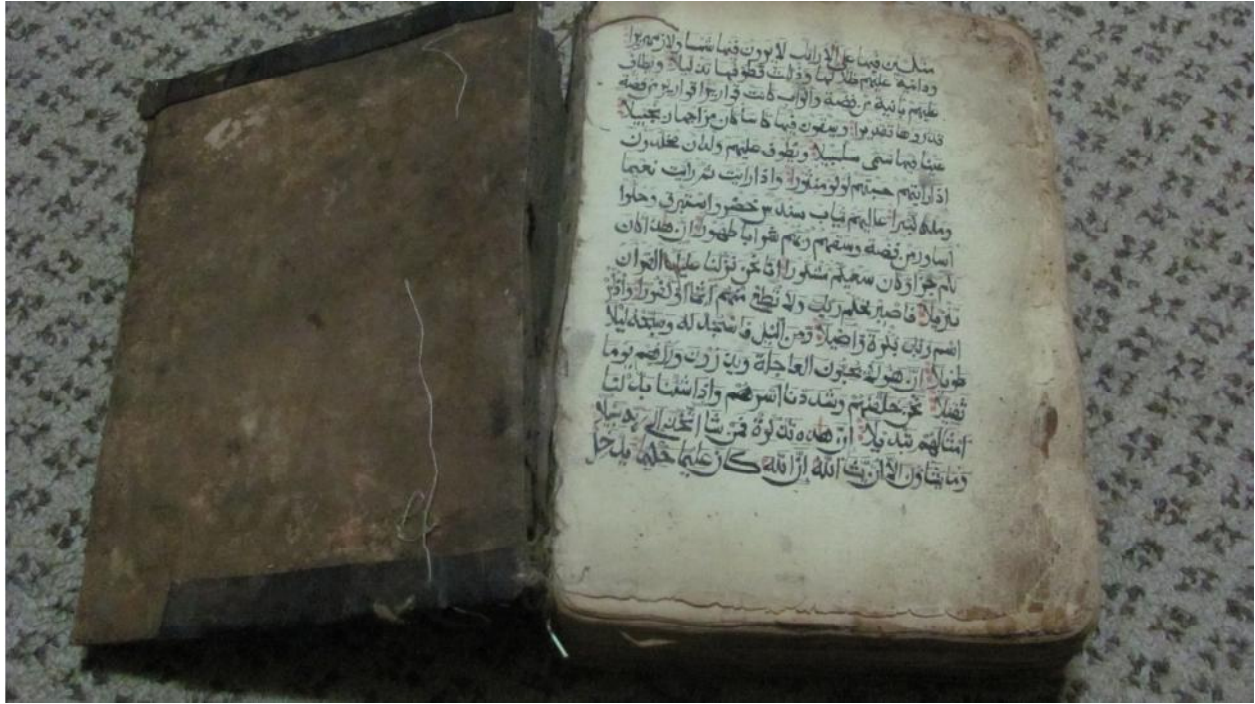 متكين فيها على الارائك لا يرون فيها شمسا ولا زمهريرا
ودانية عليهم ظلالها وذللت قطوفها تذليلا ويطاف
عليهم بانية من فضة واكواب كانت قواريرا قواريرا من فضة
قدروها تقديرا ويسقون فيها كاسا كان مزاجها زنجبيلا
عينا فيها تسمى سلسبيلا ويطوف عليهم ولدان مخلدون
اذا رايتهم حسبتهم لولوا منثورا واذا رايت ثم رايت نعيما
وملكا كبيرا عاليهم ثياب سندس خضر واستبرق وحلوا
اساور من فضة وسقيهم ربهم شرابا طهورا ان هذا كان
لكم جزا وكان سعيكم مشكورا انا نحن نزلنا عليك القران
تنزيلا فاصبر لحكم ربك ولا تطع منهم اثما او كفورا واذكر
اسم ربك بكرة واصيلا ومن اليل فاسجد له وسبحه ليلا
طويلا ان هولا يحبون العاجلة ويذرون وراهم يوما
ثقيلا نحن خلقنهم وشددنا اسرهم واذا شينا بدلنا
امثالهم تبديلا ان هذه تذكرة فمن شا اتخذ الى ربه سبيلا
وما يشاون الا ان يشا الله ان الله كان عليما حكيما يدخل